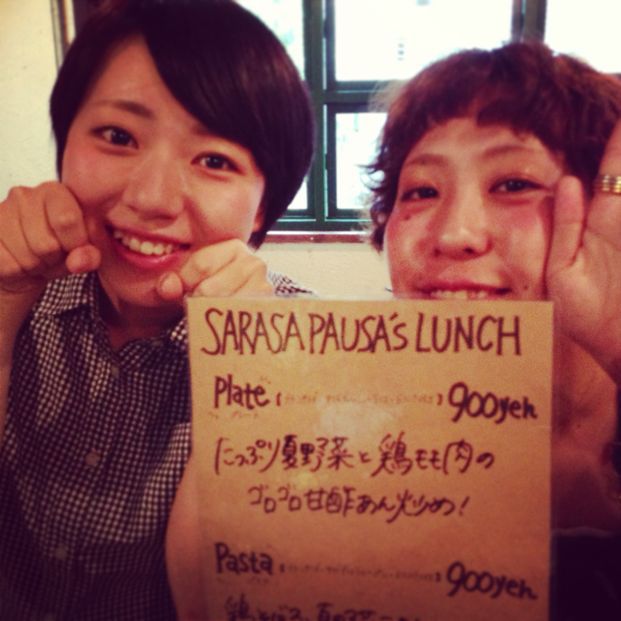 SARASA PAUSA'S LUNCH
Plate 900yen
たっぷり夏野菜と鶏もも肉の
ゴロゴロ甘酢あん炒め!
Pasta 900yen